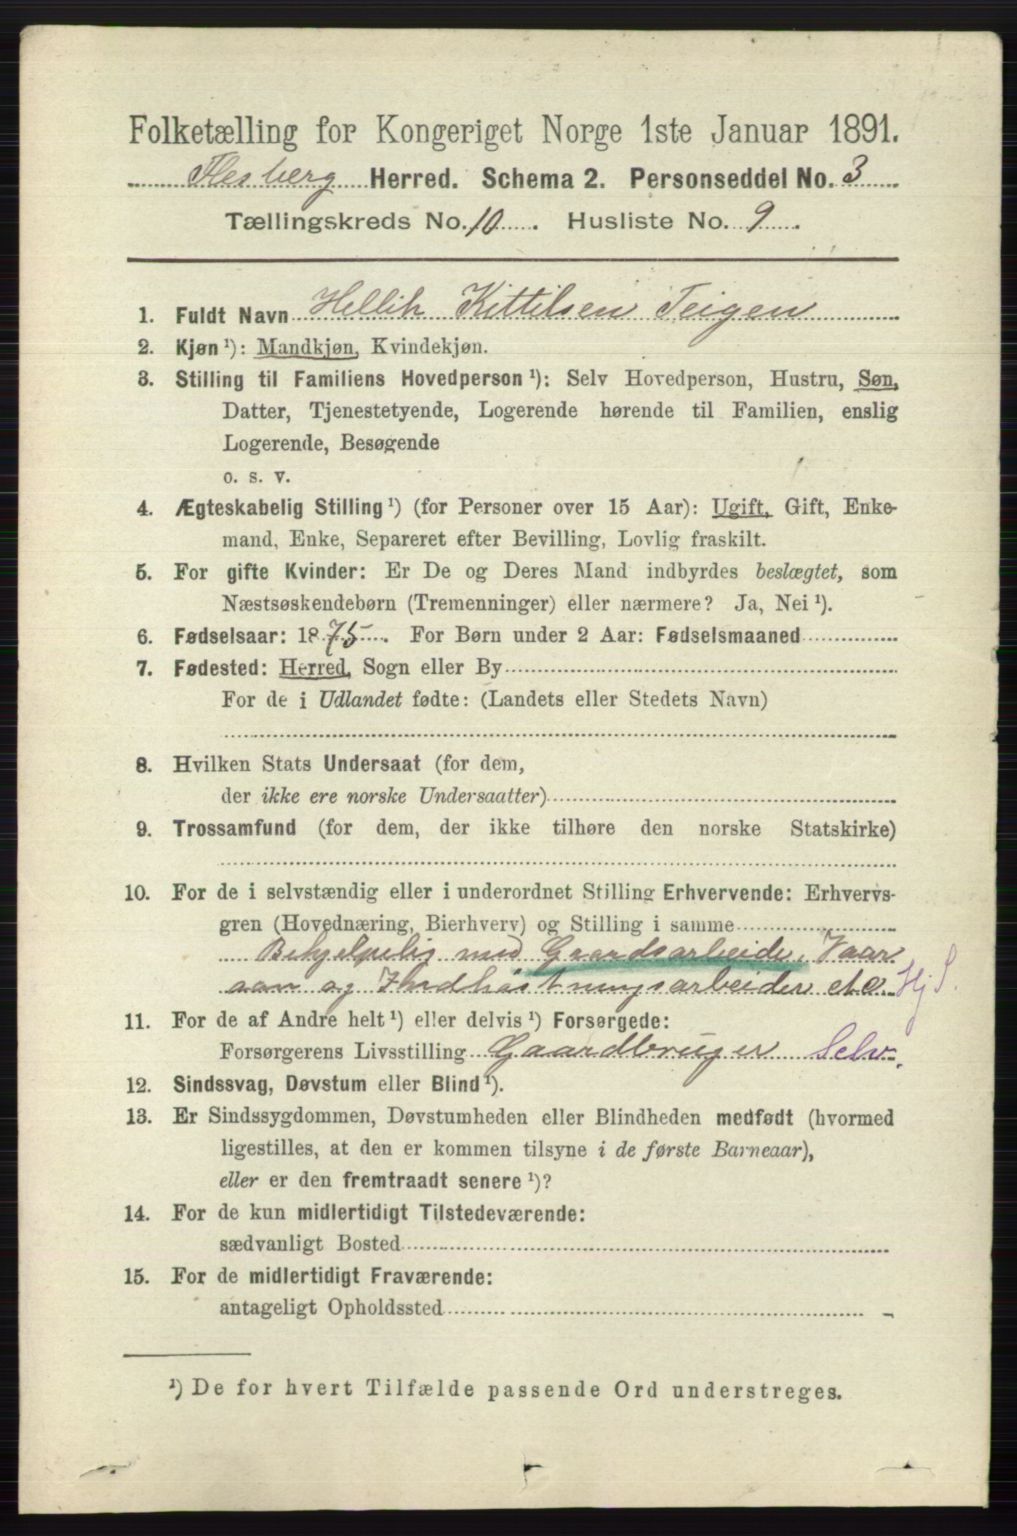 Folketælling for Kongeriget Norge 1ste Januar 1891.
Flesberg Herred. Schema 2. Personseddel No. 3
Tællingskreds No. 10. Husliste No. 9.
1. Fuldt Navn Hellik Kittilsen Teigen
2. Kjøn ¹): Mandkjøn, Kvindekjøn.
3. Stilling til Familiens Hovedperson ¹): Selv Hovedperson, Hustru, Søn,
Datter, Tjenestetyende, Logerende hørende til Familien, enslig
Logerende, Besøgende
o. s. v.
4. Ægteskabelig Stilling ¹) (for Personer over 15 Aar): Ugift, Gift, Enke-
mand, Enke, Separeret efter Bevilling, Lovlig fraskilt.
5. For gifte Kvinder: Er De og Deres Mand indbyrdes beslægtet, som
Næstsøskendebørn (Tremenninger) eller nærmere? Ja, Nei ¹).
6. Fødselsaar: 1875. For Børn under 2 Aar: Fødselsmaaned
7. Fødested: Herred, Sogn eller By
For de i Udlandet fødte: (Landets eller Stedets Navn)
8. Hvilken Stats Undersaat (for dem,
der ikke ere norske Undersaatter)
9. Trossamfund (for dem, der ikke tilhøre den norske Statskirke)
10. For de i selvstændig eller i underordnet Stilling Erhvervende: Erhvervs-
gren (Hovednæring, Bierhverv) og Stilling i samme
Behjelpelig med Gaardsarbeide, Vaar
aan og Indhøstningsarbeider etc. Hj S.
11. For de af Andre helt ¹) eller delvis ¹) Forsørgede:
Forsørgerens Livsstilling Gaardbruger Selv.
12. Sindssvag, Døvstum eller Blind ¹).
13. Er Sindssygdommen, Døvstumheden eller Blindheden medfødt (hvormed
ligestilles, at den er kommen tilsyne i de første Barneaar),
eller er den fremtraadt senere ¹)?
14. For de kun midlertidigt Tilstedeværende:
sædvanligt Bosted
15. For de midlertidigt Fraværende:
antageligt Opholdssted
¹) De for hvert Tilfælde passende Ord understreges.